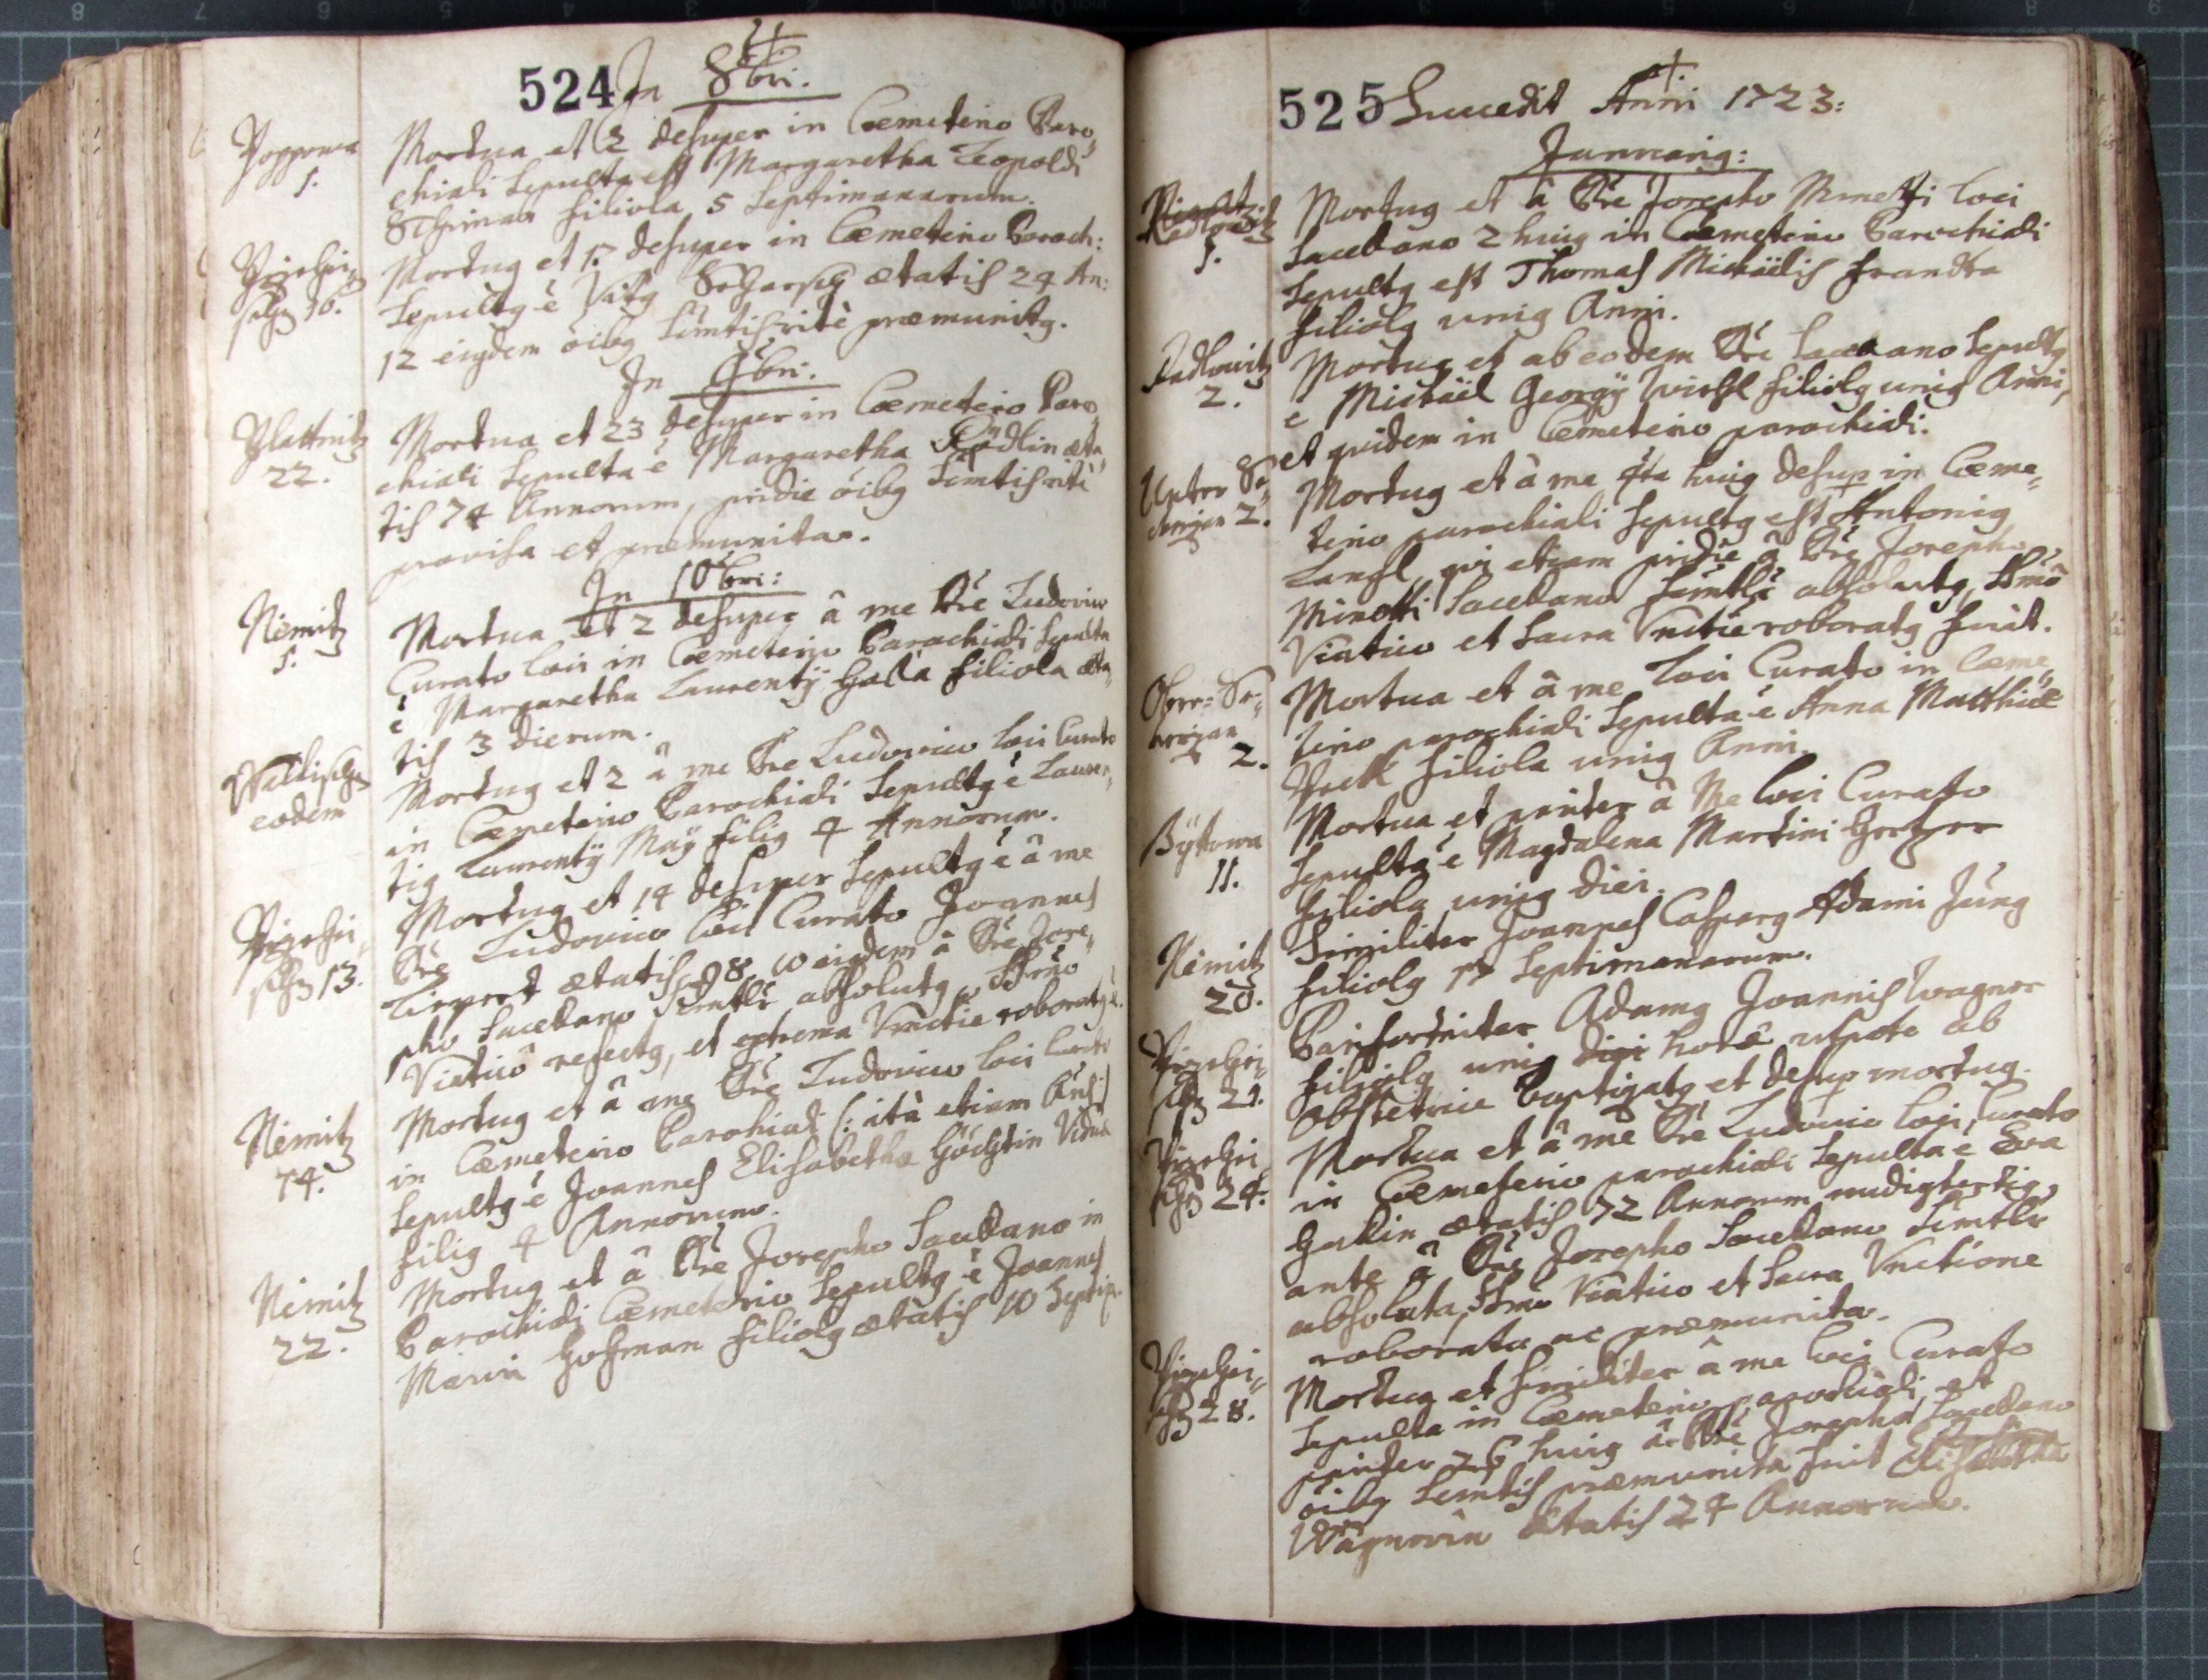 524 In 8bri.
Poppowa
1.
Mortua et 2 desuper in Coemeterio Paro„
chiali Sepulta est Margaretha Leopoldi
filiola 5 Septimanarum.
16.
Mortuq et 17 desuper in Coemeterio Paroch:
Sepultq è Vitq ætatis 24 An:
12 eiqdem oibq Semtis ritè præmunitq.
In 9bri.
Plattnitz
22.
Mortua et 23 desuper in Coemeterio Paro„
chiali Sepulta è Margaretha æta„
tis 74 Annorum, pridie oibq Semtis ritè
provisa et præmunita.
In 10bri:
Nemitz
1.
Mortua et 2 desuper à me Pre Ludovico
Curato loci in Coemeterio Parochiali Sepulta
è Margaretha Laurentÿ filiola æta„
tis 3 dierum.
eodem
Mortuq et 2 à me Pre Ludovico loci Curato
in Coemeterio Parochiali Sepultq è Lauren„
tiq Laurentÿ Maÿ filiq 4 Annorum.
13.
Mortuq et 14 desuper Sepultq è à me
Pre Ludovico loci Curato Joannes
ætatis 98, eiqdem à Pre Jose„
pho Sacellano Semtlr absolutq, SSmo
Viatico refectq, et extrema Vnctie roboratq è.
Nemitz
14.
Mortuq et à me Pre Ludovico loci Curato
in Coemeterio Parohiali (: ità etiam
Sepultq è Joannes Elisabetha Viduæ
filiq 4 Annorum.
Nemitz
22.
Mortuq et à Pre Josepho Sacellano in
Parochiali Coemeterio Sepultq è Joannes
Hofman filiolq ætatis 10 Septim.
525 Succedit Anni 1723:
Januariq:
1.
Mortuq et à Pre Josepho Minetti loci
Sacellano 2 huiq in Coemeterio Parochiali
Sepultq est Thomas Michäelis Frandta
filiolq uniq Anni.
Radlowitz
2.
Mortuq et ab eodem Pre Sacellano Sepultq
è Michäel Georgÿ filiolq uniq Anni,
et quidem in Coemeterio parochiali.
Unter Se„
2.
Mortuq et à me 4ta huiq desup in Coeme„
terio parochiali Sepultq est Antoniq
qui etiam pridie à Pre Josepho
Minetti Sacellano Semtlr absolutq, SSmo
Viatico et Sacra Vnctie roboratq fuit.
Ober: Se„
2.
Mortua et à me loci Curato in Coeme„
terio parochiali Sepulta è Anna Matthiæ
filiola uniq Anni.
Bÿttowa
11.
Mortua et pariter à Me loci Curato
Sepulta è Magdalena Martini
filiola uniq diei.
Nemitz
20.
Similiter Joannes Casparq Adami Jung
filiolq 17 Septimanarum.
21.
Pariformiter Adamq Joannis Wagner
filiolq uniq diei horæ utpote ab
obstetrice baptizatq et desup mortuq.
24.
Mortua et à me Pre Ludovico loci Curato
in Coemeterio parochiali Sepulta è Eva
ætatis 72 Annorum nudiqtertiq
ante à Pre Josepho Sacellano Semtlr
absoluta, SSmo Viatico et Sacra Vnctione
roborata ac præmunita.
28.
Mortua et similiter à me loci Curato
Sepulta in Coemeterio parochiali, et
pariter 26 huiq à Pre Josepho Sacellano
oibq Semtis præmunita fuit Elisabetha
Wagnerin Ætatis 24 Annorum.